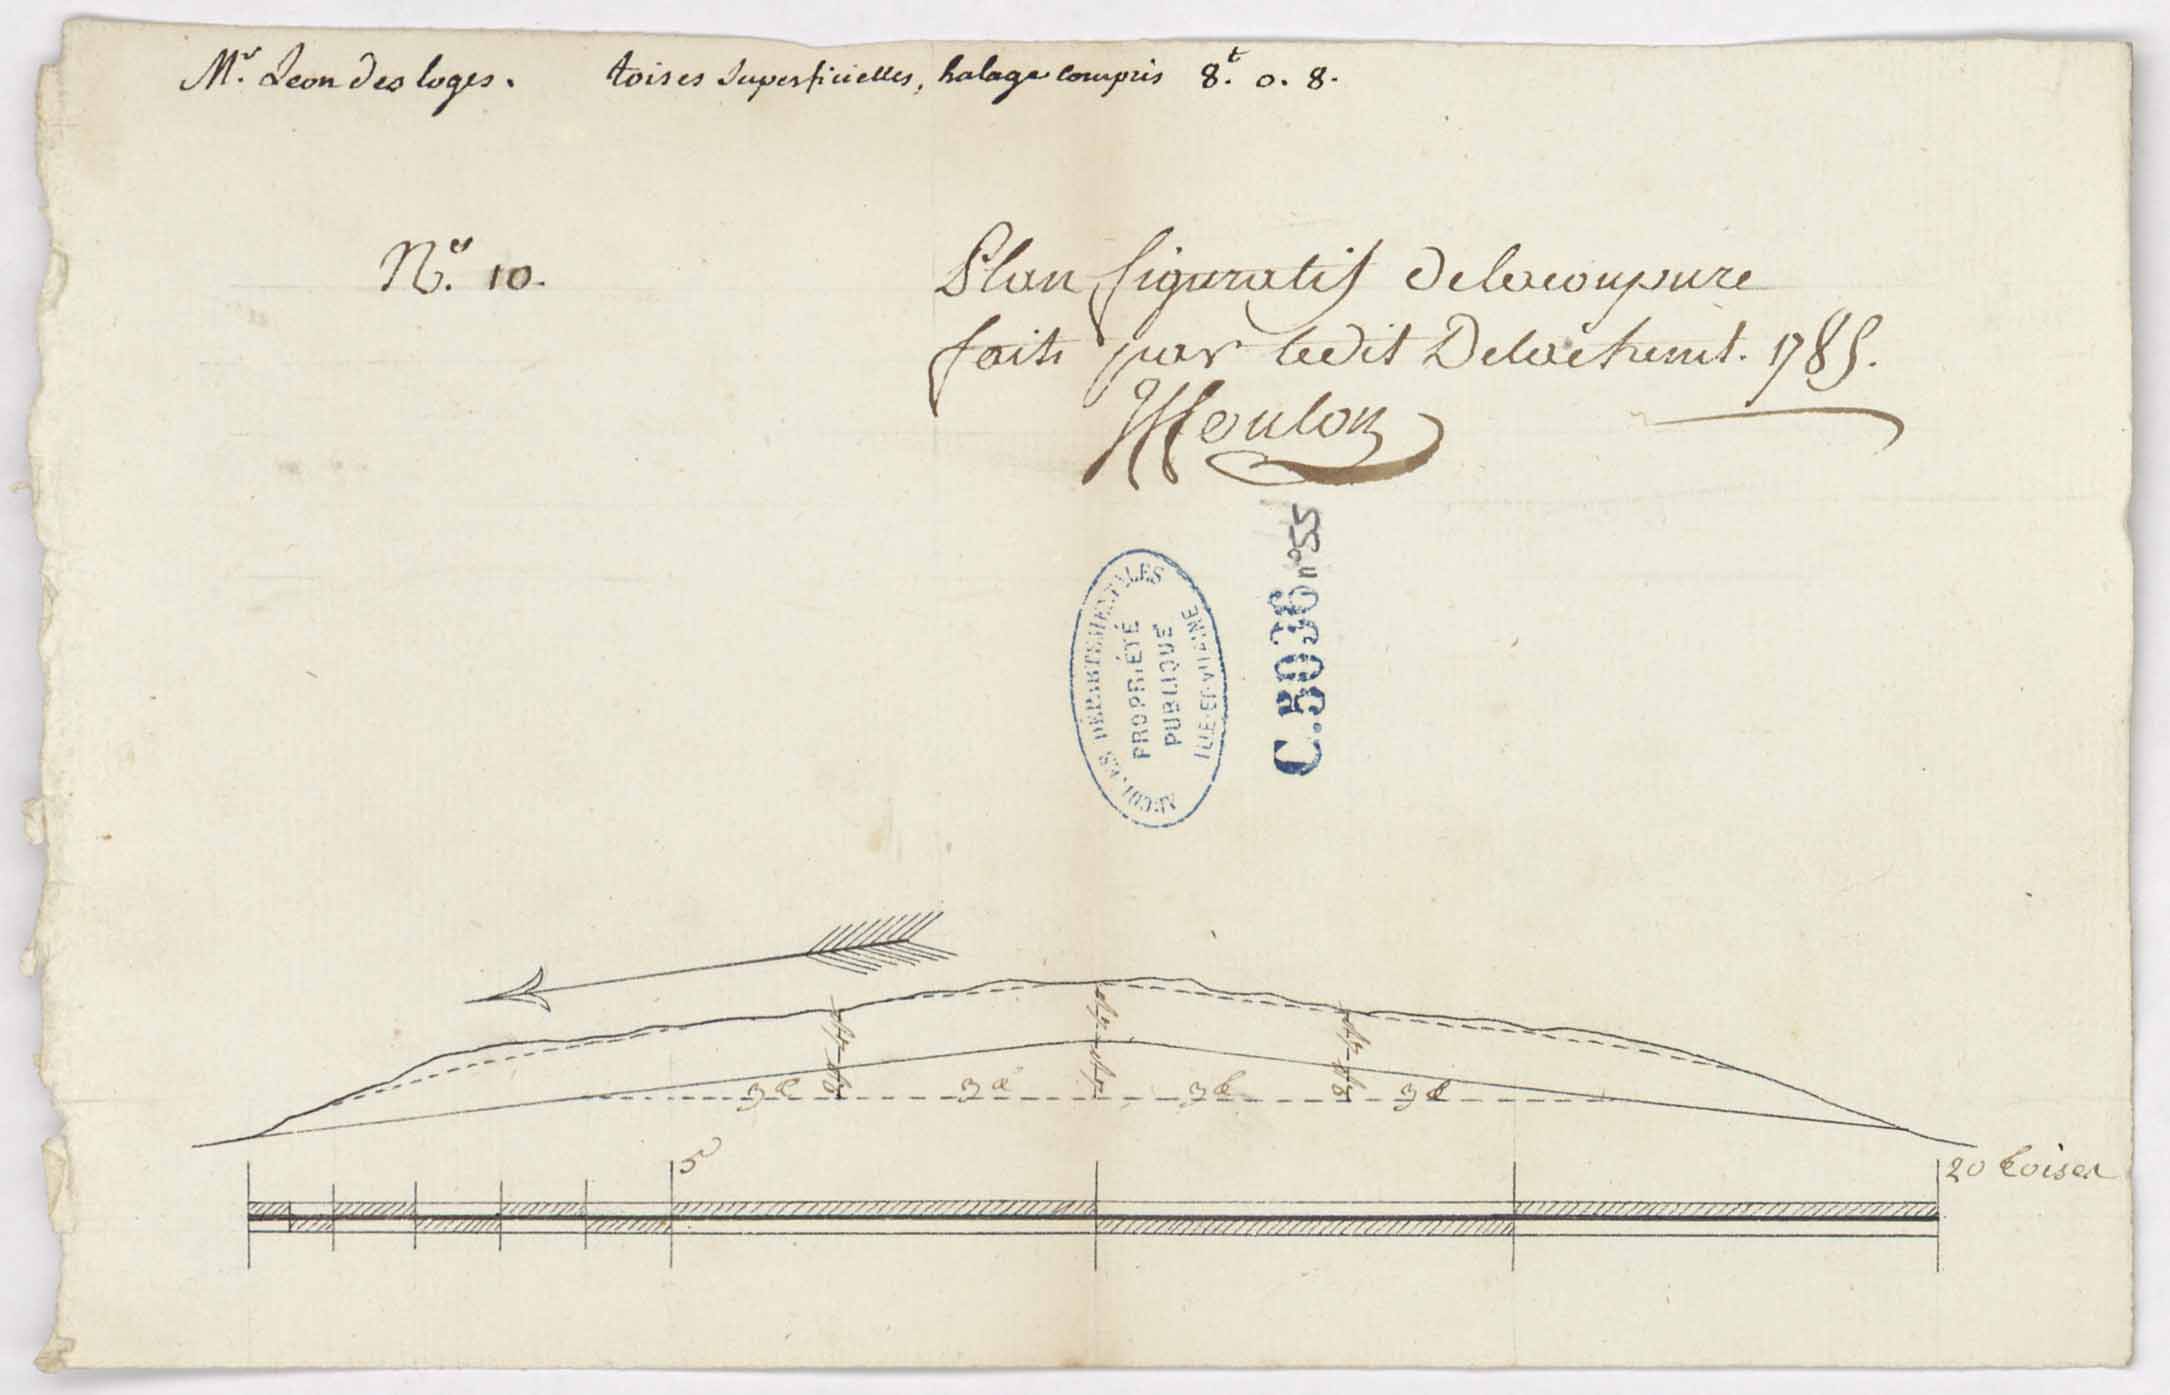 Mr. Leon des loges. toises superficielles, halage compris 8.t 0. 8.
No. 10.
Plan figuratif delacoupure
fait par ledit Detachemt. 1785.
Moulon
ARCHIVES DÉPARTEMENTALES
PROPRIÉTÉ
PUBLIQUE
ILLE-ET-VILAINE
C.5036 n°55
3t 3t 3t 3t
5
20 toises